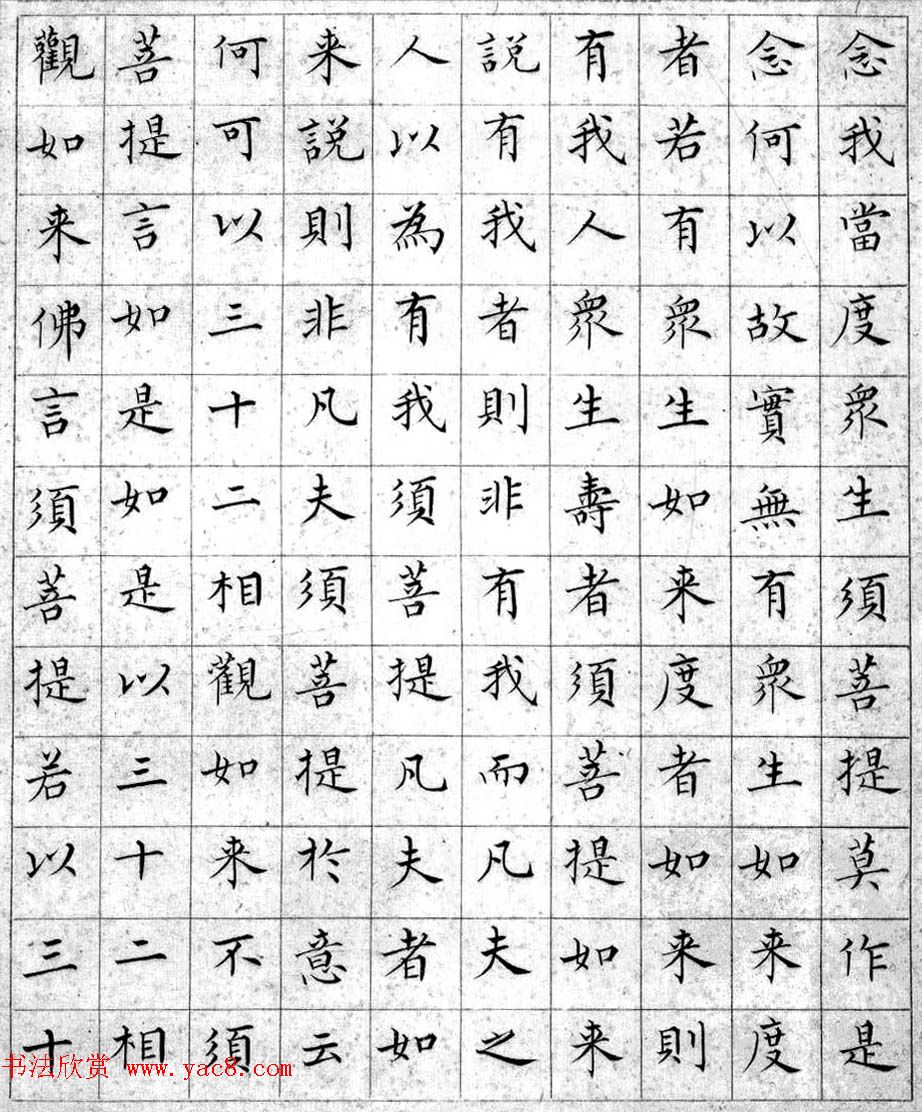 念我當度眾生須菩提莫作是
念何以故實無有眾生如來度
者若有眾生如来度者如来則
有我人眾生壽者須菩提如来
說有我者則非有我而凡夫之
人以為有我須菩提凡夫者如
来說則非凡夫須菩提於意云
何可以三十二相觀如来不須
菩提言如是如是以三十二相
觀如来佛言須菩提若以三十
书法欣赏 www.yac8.com